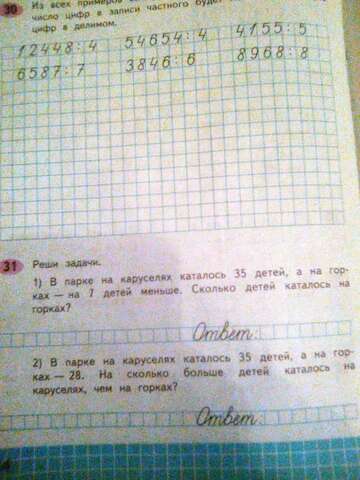 30 Из всех примеров
число цифр в записи частного
цифр в делимом.
12448 : 4 54654 : 4 4155 : 5
6587 : 7 3846 : 6 8968 : 8
31 Реши задачи.
1) В парке на каруселях каталось 35 детей, а на гор-
ках — на 7 детей меньше. Сколько детей каталось на
горках?
Ответ:
2) В парке на каруселях каталось 35 детей, а на гор-
ках — 28. На сколько больше детей каталось на
каруселях, чем на горках?
Ответ:
4